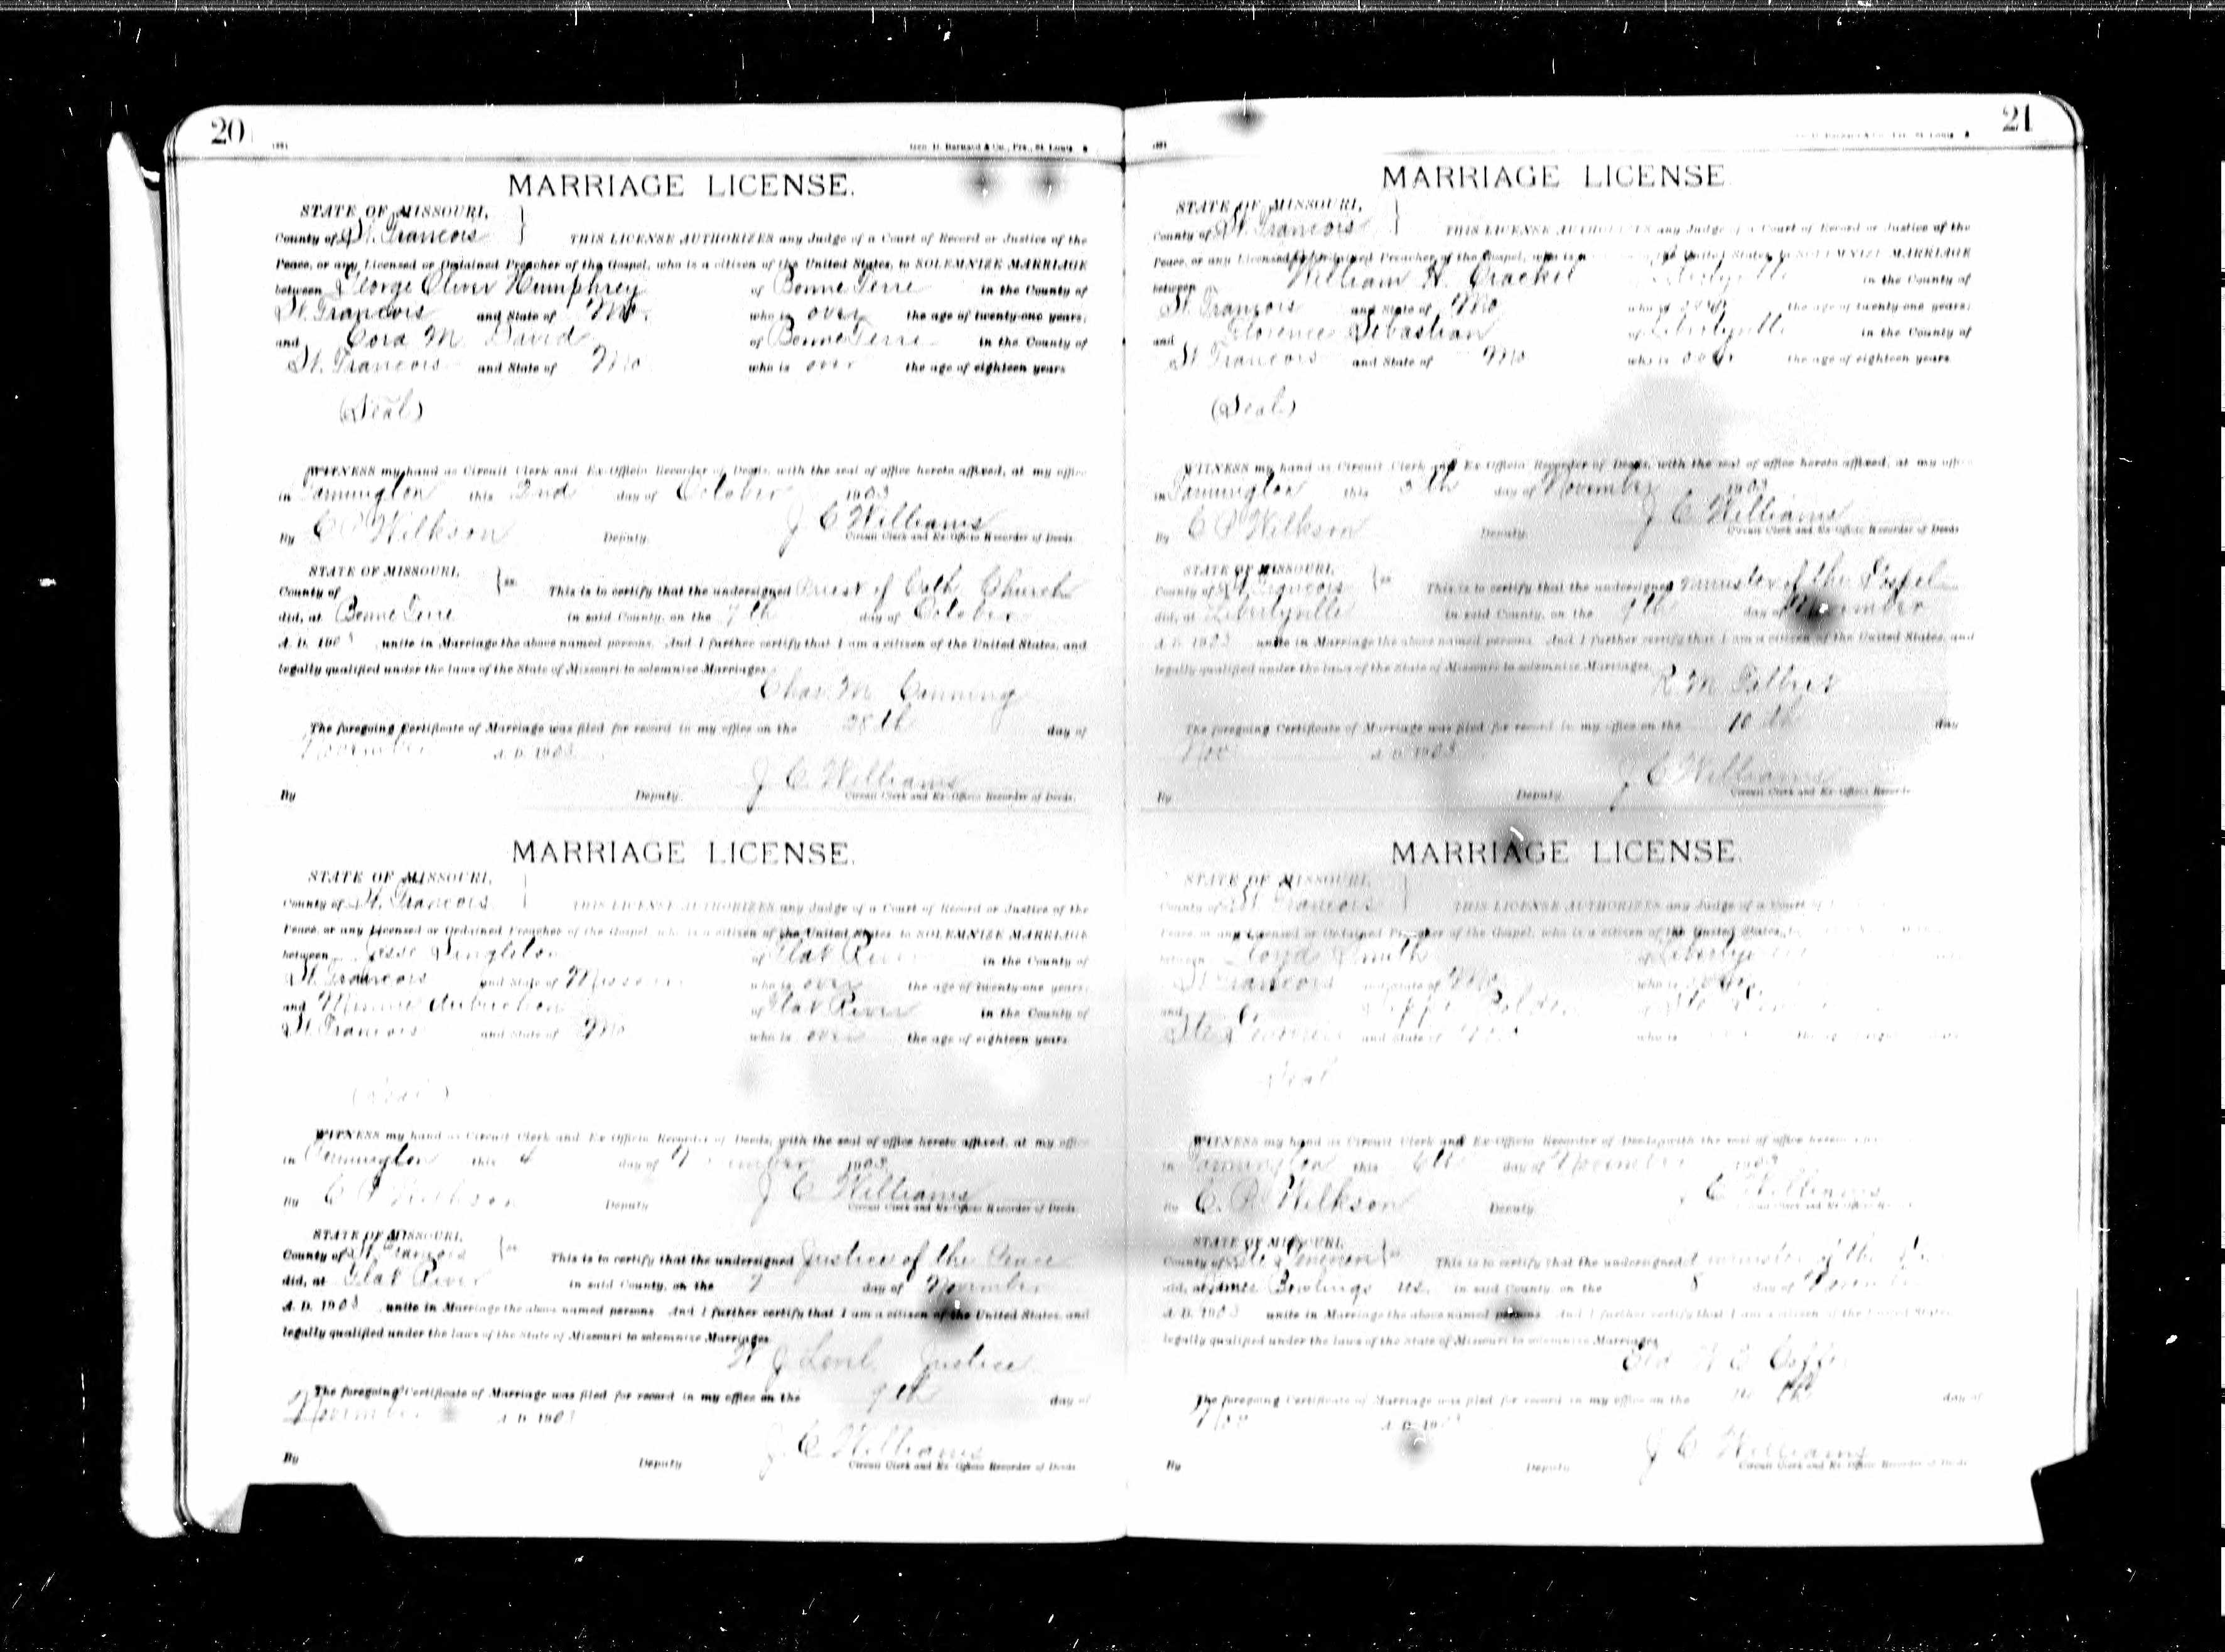 20
Geo. D. Barnard & Co., Prs., St. Louis
MARRIAGE LICENSE.
STATE OF MISSOURI,
County of St. Francois THIS LICENSE AUTHORIZES any Judge of a Court of Record or Justice of the
Peace, or any Licensed or Ordained Preacher of the Gospel, who is a citizen of the United States, to SOLEMNIZE MARRIAGE
between George Oliver Humphrey of Bonne Terre in the County of
St. Francois and State of Mo. who is over the age of twenty-one years,
and Cora M David of Bonne Terre in the County of
St. Francois and State of Mo who is over the age of eighteen years
(Seal)
WITNESS my hand as Circuit Clerk and Ex-Officio Recorder of Deeds, with the seal of office hereto affixed, at my office
in Farmington this 2nd day of October 1903
By C P Wilkson Deputy. J C Williams
Circuit Clerk and Ex-Officio Recorder of Deeds.
STATE OF MISSOURI,
County of ss This is to certify that the undersigned Priest of Cath Church
did, at Bonne Terre in said County, on the 7th day of October
A. D. 190 unite in Marriage the above named persons. And I further certify that I am a citizen of the United States, and
legally qualified under the laws of the State of Missouri to solemnize Marriages.
Chas. M
The foregoing Certificate of Marriage was filed for record in my office on the 28th day of
November A. D. 1903
J C Williams
By Deputy. Circuit Clerk and Ex-Officio Recorder of Deeds.
MARRIAGE LICENSE.
STATE OF MISSOURI,
County of St. Francois THIS LICENSE AUTHORIZES any Judge of a Court of Record or Justice of the
Peace, or any Licensed or Ordained Preacher of the Gospel, who is a citizen of the United States, to SOLEMNIZE MARRIAGE
between Jesse Singleton of Flat River in the County of
St Francois and State of Missouri who is over the age of twenty-one years,
and Minnie Aubuchon of Flat River in the County of
St Francois and State of Mo who is over the age of eighteen years
(Seal)
WITNESS my hand as Circuit Clerk and Ex-Officio Recorder of Deeds, with the seal of office hereto affixed, at my office
in Farmington this 4 day of November 1903
By C P Wilkson Deputy J C Williams
Circuit Clerk and Ex-Officio Recorder of Deeds.
STATE OF MISSOURI,
County of St. Francois ss This is to certify that the undersigned Justice of the Peace
did, at Flat River in said County, on the 7 day of November
A. D. 1903 unite in Marriage the above named persons And I further certify that I am a citizen of the United States, and
legally qualified under the laws of the State of Missouri to solemnize Marriages
J Justice
The foregoing Certificate of Marriage was filed for record in my office on the 9th day of
November A. D. 190
J C Williams
By Deputy Circuit Clerk and Ex-Officio Recorder of Deeds
21
MARRIAGE LICENSE
STATE OF MISSOURI,
County of St. Francois THIS LICENSE AUTHORIZES any Judge of a Court of Record or Justice of the
Peace, or any Licensed or Ordained Preacher of the Gospel, who is a the United States, to SOLEMNIZE MARRIAGE
between William H. Crackel Libertyville in the County of
St Francois and State of Mo who is over the age of twenty-one years,
and Florence Sebastian of Libertyville in the County of
St Francois and State of Mo who is over the age of eighteen years
(Seal)
WITNESS my hand as Circuit Clerk and Ex-Officio Recorder of Deeds, with the seal of office hereto affixed, at my office
in Farmington this 5th day of November 1903
By C P Wilkson Deputy J C Williams
Circuit Clerk and Ex-Officio Recorder of Deeds
STATE OF MISSOURI,
County of St Francois ss This is to certify that the undersigned minister of the Gospel
did, at Libertyville in said County, on the 9th day of November
A. D. 1903 unite in Marriage the above named persons. And I further certify that I am a citizen of the United States, and
legally qualified under the laws of the State of Missouri to solemnize Marriages.
R M
The foregoing Certificate of Marriage was filed for record in my office on the 10th day
Nov A. D. 1903
J C Williams
By Deputy. Circuit Clerk and Ex-Officio Recorder
MARRIAGE LICENSE.
STATE OF MISSOURI,
County of St. Francois THIS LICENSE AUTHORIZES any Judge of a Court
Peace, or any Licensed or Ordained Preacher of the Gospel, who is a citizen of the United States,
between Loyd Smith of
St Francois and State of Mo who is
and
and State of who is
Seal
WITNESS my hand as Circuit Clerk and Ex-Officio Recorder of Deeds, with the seal of office hereto
in Farmington this 6th day of November 1903
By C. P. Wilkson Deputy C Williams
STATE OF MISSOURI,
County of ss This is to certify that the undersigned minister of the
did, at Res. in said County, on the 8 day of
A. D. 1903 unite in Marriage the above named persons And I further certify that I am a citizen of the United States,
legally qualified under the laws of the State of Missouri to solemnize Marriages
The foregoing Certificate of Marriage was filed for record in my office on the day of
Nov A. D. 190
J C Williams
By Deputy Circuit Clerk and Ex-Officio Recorder of Deeds